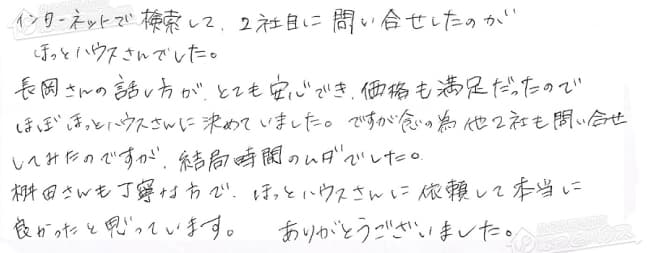 インターネットで検索して、2社目に問い合せしたのが
ほっとハウスさんでした。
長岡さんの話し方が、とても安心でき、価格も満足だったので
ほぼほっとハウスさんに決めていました。ですが念の為他2社も問い合せ
してみたのですが、結局時間のムダでした。
桝田さんも丁寧な方で、ほっとハウスさんに依頼して本当に
良かったと思っています。 ありがとうございました。